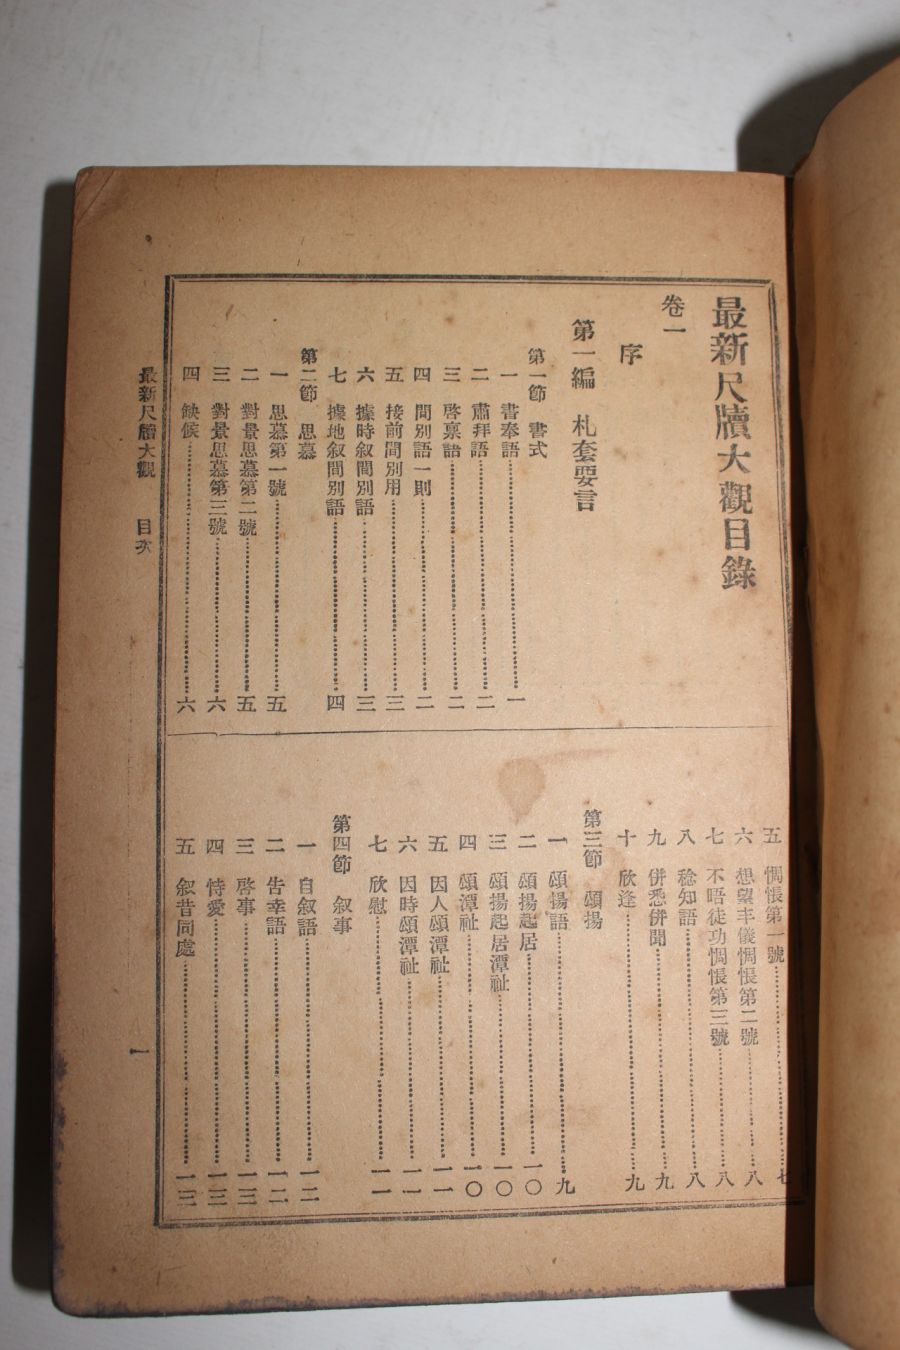 最新尺牘大觀目錄
卷一
序
第一編 札套要言
第一節 書式
一 書奉語……一
二 肅拜語……二
三 啓稟語……二
四 間別語一則……二
五 接前間別用……三
六 據時叙間別語……三
七 據地叙間別語……四
第二節 思慕
一 思慕第一號……五
二 對景思慕第二號……五
三 對景思慕第三號……六
四 缺候……六
五 惆悵第一號……七
六 想望丰儀惆悵第二號……八
七 不晤徒功惆悵第三號……八
八 稔知語……八
九 併悉併聞……九
十 欣逢……九
第三節 頌揚
一 頌揚語……九
二 頌揚起居……一〇
三 頌揚起居潭祉……一〇
四 頌潭祉……一〇
五 因人頌潭祉……一一
六 因時頌潭祉……一一
七 欣慰……一一
第四節 叙事
一 自叙語……一二
二 告幸語……一二
三 啓事……一三
四 恃愛……一三
五 叙昔同處……一三
最新尺牘大觀 目次 一